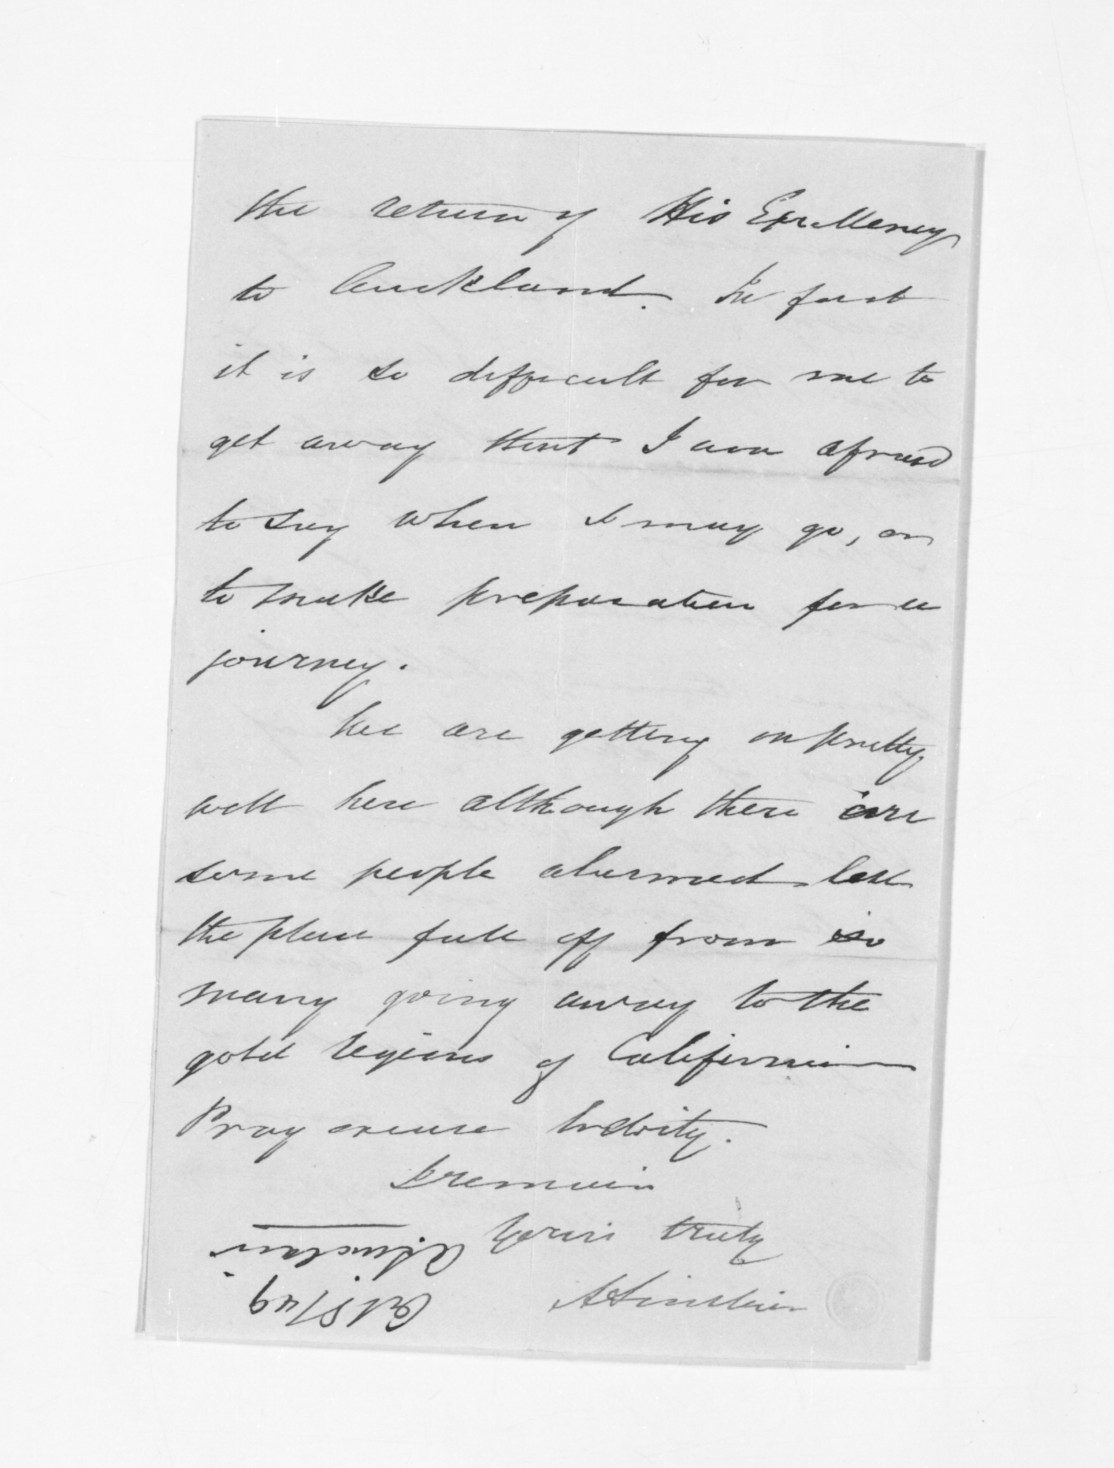 the return of His Excellency
to Auckland. In fact
it is so difficult for me to
get away that I am afraid
to say when I may go, or
to make preparation for a
journey.
We are getting on pretty
well here although there are
some people alarmed lest
the place fall off from so
many going away to the
gold regions of California
Pray excuse brevity.
I remain
Yours truly
A Sinclair
A. Sinclair
Oct 8/49